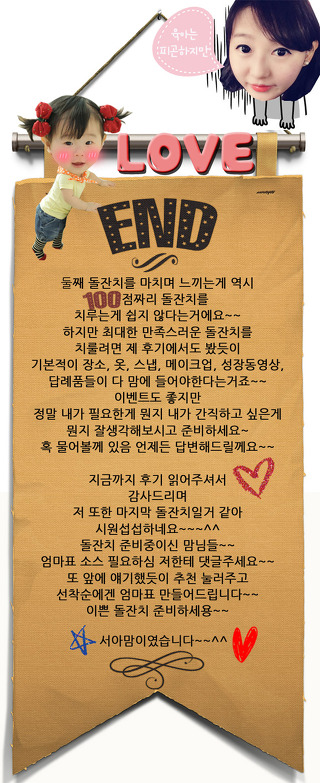 육아는
피곤하지만
LOVE
END
둘째 돌잔치를 마치며 느끼는게 역시
100점짜리 돌잔치를
치루는게 쉽지 않다는거에요~~
하지만 최대한 만족스러운 돌잔치를
치룰려면 제 후기에서도 봤듯이
기본적이 장소, 옷, 스냅, 메이크업, 성장동영상,
답례품들이 다 맘에 들어야한다는거죠~~
이벤트도 좋지만
정말 내가 필요한게 뭔지 내가 간직하고 싶은게
뭔지 잘생각해보시고 준비하세요~
혹 물어볼께 있음 언제든 답변해드릴께요~~
지금까지 후기 읽어주셔서
감사드리며
저 또한 마지막 돌잔치일거 같아
시원섭섭하네요~~~^^
돌잔치 준비중이신 맘님들~~
엄마표 소스 필요하심 저한테 댓글주세요~~
또 앞에 얘기했듯이 추천 눌러주고
선착순에겐 엄마표 만들어드립니다~~
이쁜 돌잔치 준비하세용~~
서아맘이였습니다~~^^